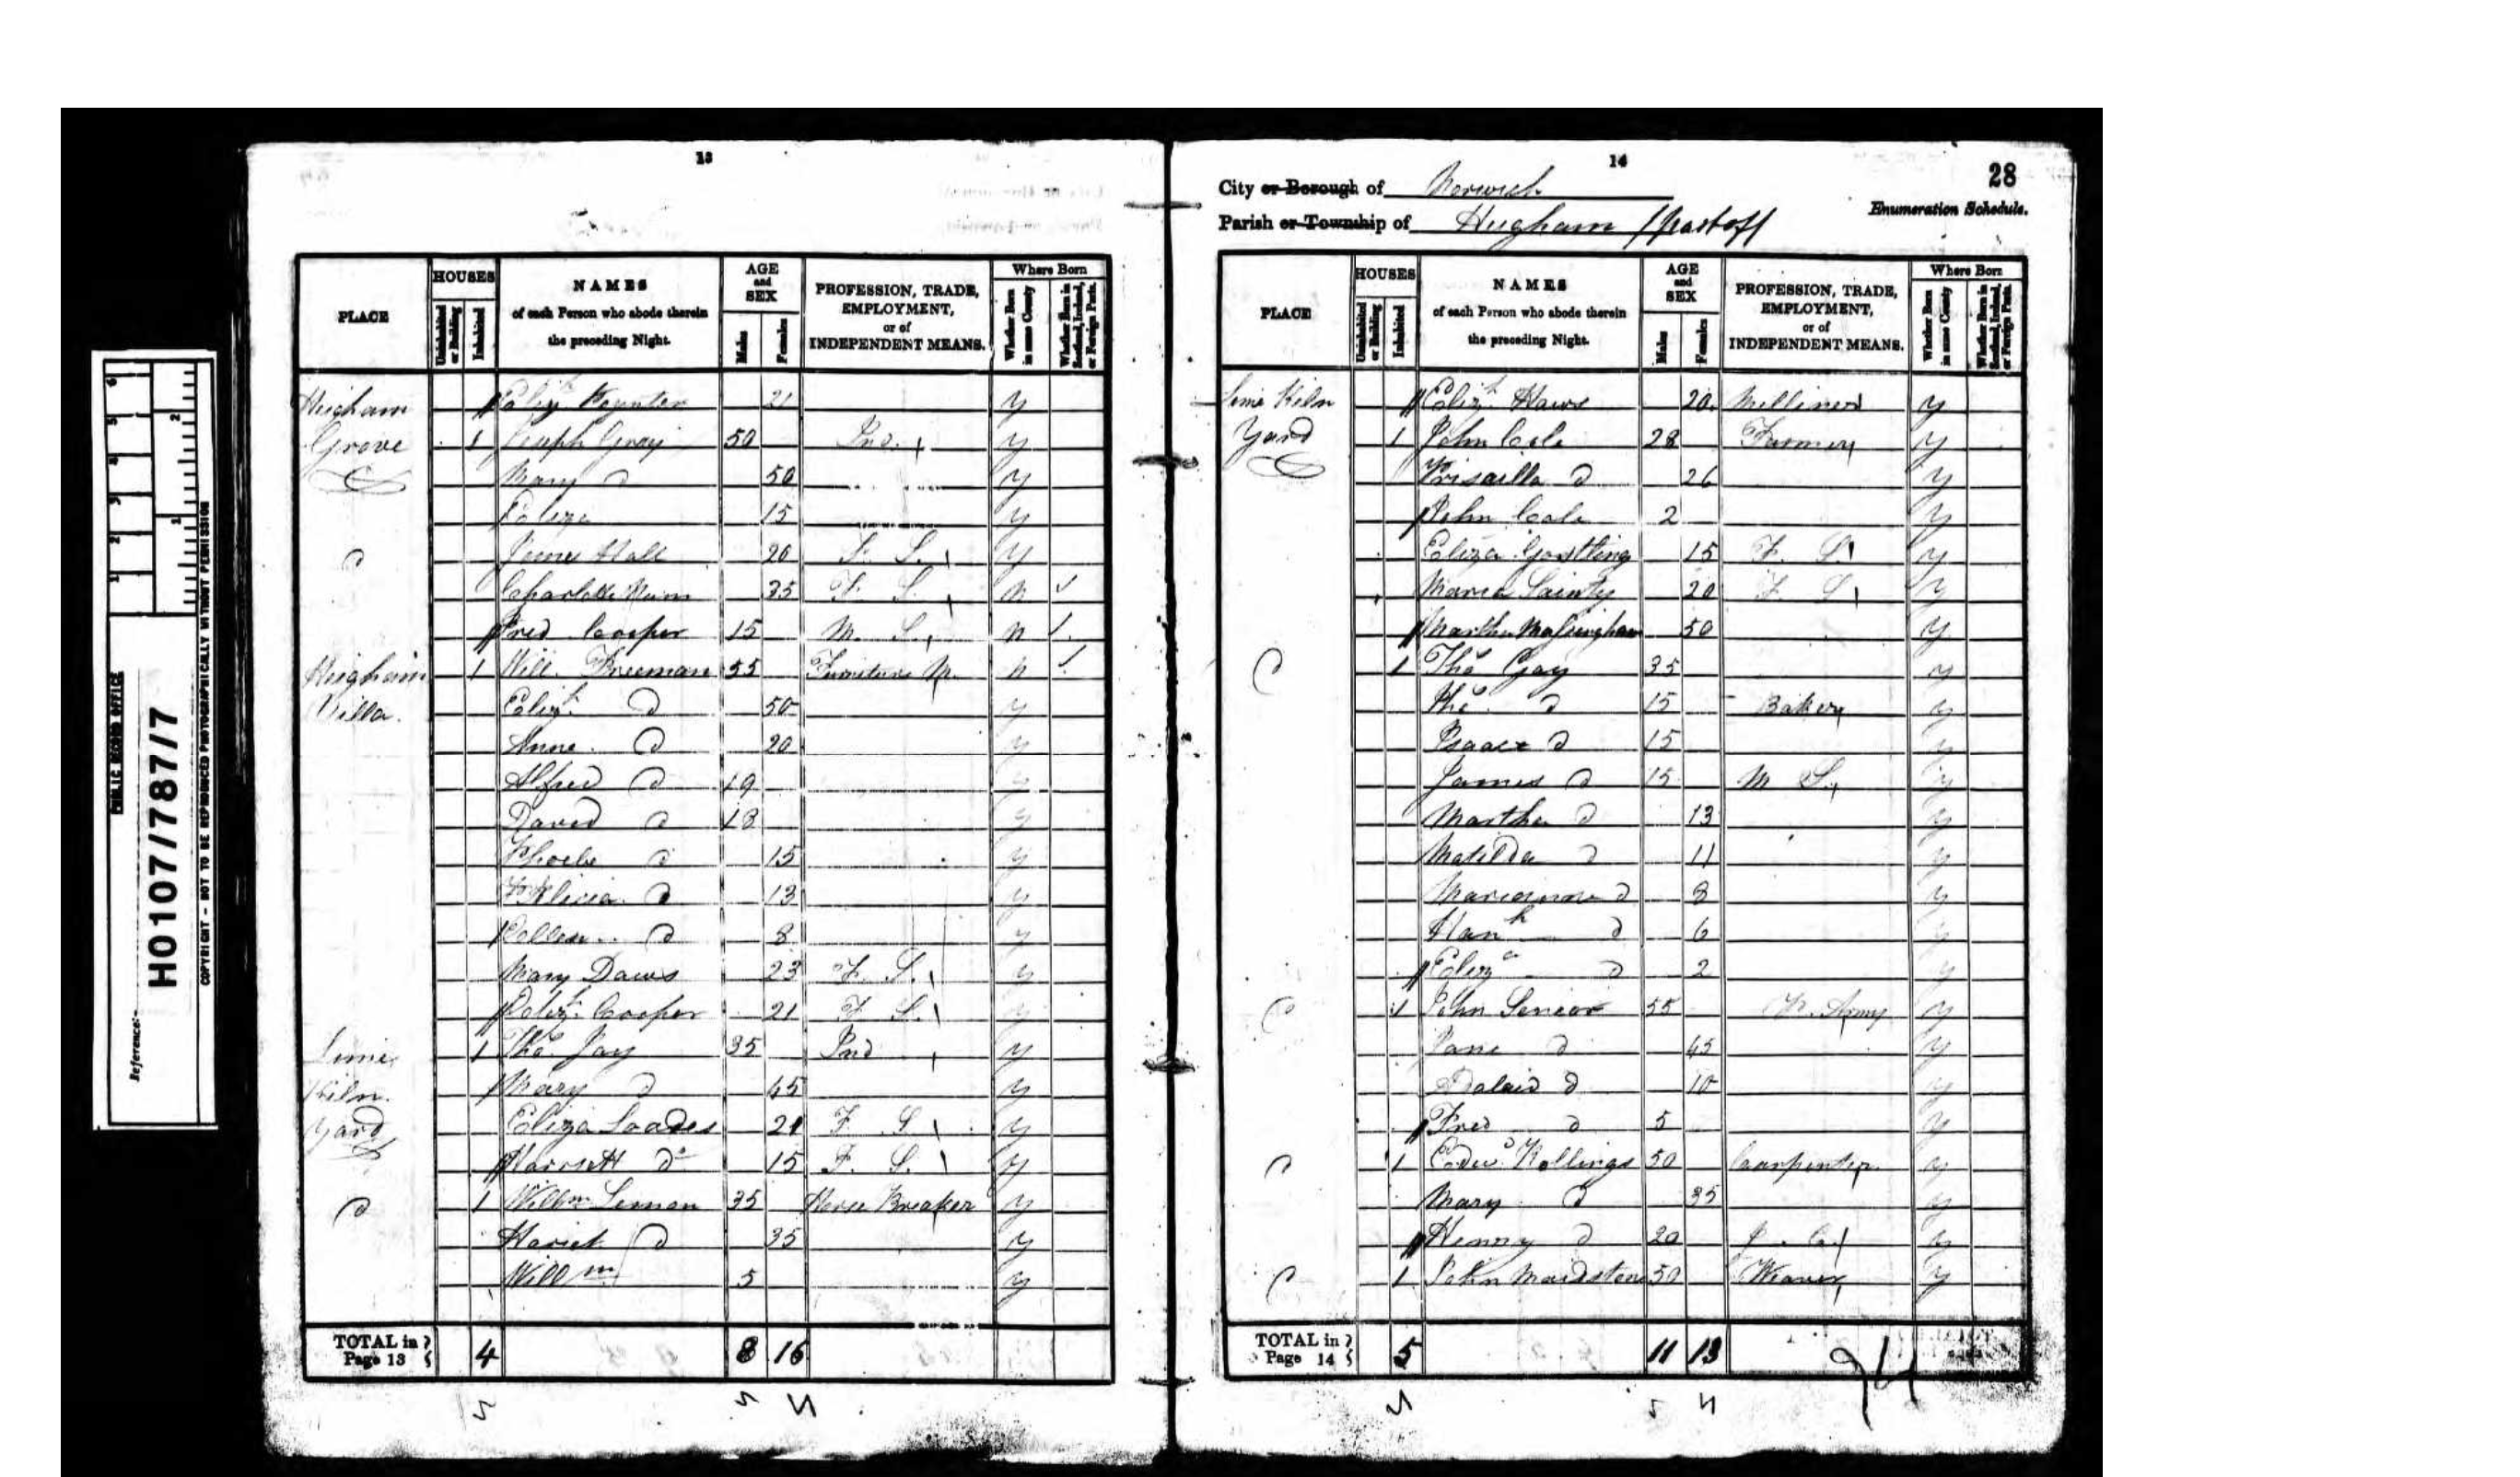 13
PLACE
HOUSES
Uninhabited or Building
Inhabited
NAMES
of each Person who abode therein
the preceding Night.
AGE
and
SEX
Males
Females
PROFESSION, TRADE,
EMPLOYMENT,
or of
INDEPENDENT MEANS.
Where Born
Whether Born in same County
Whether Born in Scotland, Ireland, or Foreign Parts.
Heigham Eliz.h Poynter 21 y
Grove 1 Joseph Gray 50 Ind. y
Mary d 50 y
Eliza 15 y
d Hall 20 F. S. y
Charlotte 35 F. S. n
Fred Cooper 15 M. S. n
Heigham 1 Will. Freeman 55 Furniture M. n
Villa. Eliz.h d 50 y
Anne. d 20 y
Alfred d 19 y
David d 18 y
Phoebe d 15 y
Felicia. d 13 y
Ellen.. d 8 y
Mary Daws 23 F. S. y
Eliz.h Cooper 21 F. S. y
Lime 1 Tho.s Jay 35 Ind y
Kiln. Mary d 45 y
Yard Eliza Loades 21 F. S y
Harriett d.o 15 F. S. y
d 1 Willm Lemon 35 Horse Breaker y
Hariet d 35 y
Willm 5 y
TOTAL in Page 13 4 8 16
14
28
City or Borough of Norwich
Parish or Township of Heigham / part of /
Enumeration Schedule.
PLACE
HOUSES
Uninhabited or Building
Inhabited
NAMES
of each Person who abode therein
the preceding Night.
AGE
and
SEX
Males
Females
PROFESSION, TRADE,
EMPLOYMENT,
or of
INDEPENDENT MEANS.
Where Born
Whether Born in same County
Whether Born in Scotland, Ireland, or Foreign Parts.
Lime Kiln Eliz.h Haws 20. Milliner y
Yard 1 John Cole 28 Farmer y
Priscilla d 26 y
John Cole 2 y
Eliza Gostling 15 F. S. y
Maria Sainty 20 F. S. y
Martha Massingham 50 y
1 Tho.s Gay 35 y
Tho.s d 15 Baker y
Isaac d 15 y
James d 15 M S. y
Martha d 13 y
Matilda d 11 y
Marianne d 8 y
Hanh d 6 y
Eliza d 2 y
1 John Senior 55 Army y
Jane d 45 y
Adelaid d 10 y
Fred d 5 y
1 Edwd Rollings 50 Carpenter y
Mary d 35 y
Henry d 20 y
1 John Maidstone 50 Weaver y
TOTAL in Page 14 5 11 13
PUBLIC RECORD OFFICE
Reference:-
HO107/787/7
COPYRIGHT - NOT TO BE REPRODUCED PHOTOGRAPHICALLY WITHOUT PERMISSION
1
2
3
4
5
6
1
2